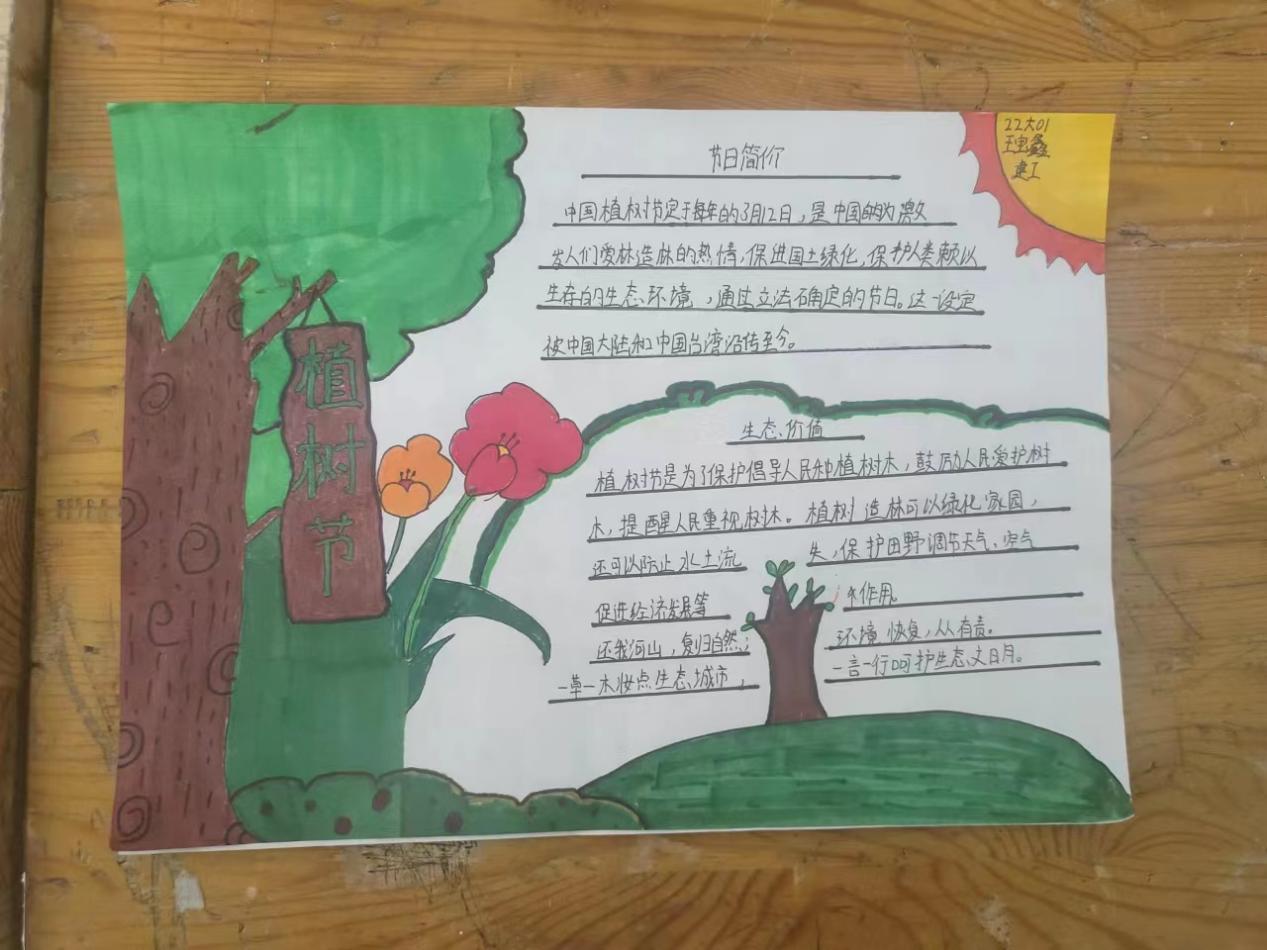 植树节
22大01
建工
节日简价
中国植树节定于每年的3月12日，是中国的为激
发人们爱林造林的热情，保进国土绿化，保护人类赖以
生存的生态环境，通过立法确定的节日。这一设定
被中国大陆和中国台湾沿传至今。
生态价值
植树节是为了保护倡导人民种植树木，鼓励人民爱护树
木，提醒人民重视树木。植树造林可以绿化家园，
还可以防止水土流失，保护田野调节天气、空气
促进经济发展等作用。
还我河山，复归自然；环境恢复，人人有责。
一草一木妆点生态城市，一言一行呵护生态文日月。